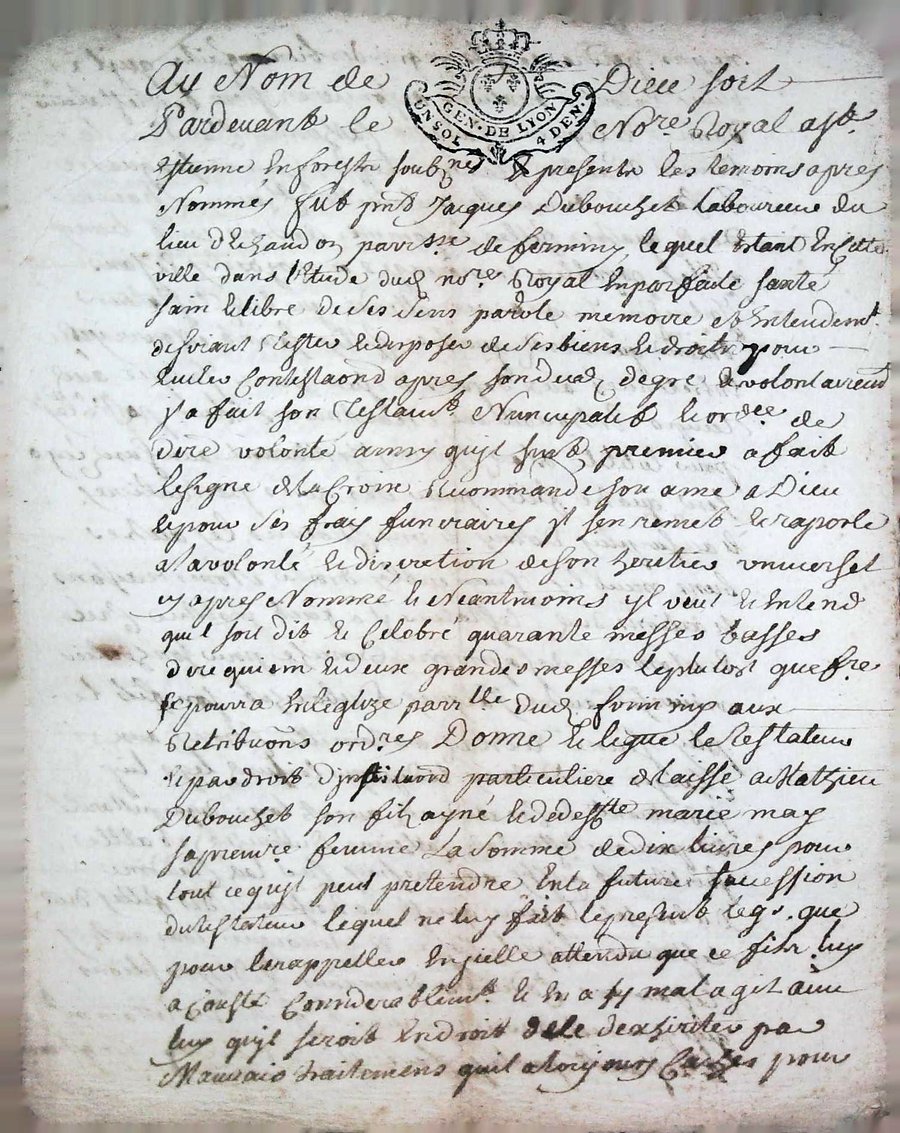 Au Nom de Dieu soit
GEN. DE LYON
UN SOL 4 DEN.
Pardevant le No.re Royal a St.
estienne en forestz soub.nes & presents les temoins apres
Nommés fut pnt Jacques Dubouchet laboureur du
lieu d'Echandon parr.sse de firminy lequel estant en cette
ville dans l'Etude dud no.re Royal en parfaite santé
sain et libre de ses sens parolle memoire et entendemt
desirant tester et disposer de ses biens et droits pour
apres son deces de gré et volontairement
y a fait son testamt Nuncupatif et ord.ce de
dere volonté ainsy quil suit premier a fait
le signe de la Croix recommandé son ame a Dieu
et pour ses frais funeraires il sen remet et raporte
a la volonté et discretion de son heritier universel
cy apres Nommé et Neantmoins yl veut et entend
quil soit dit et Celebré quarante messes basses
de requiem et deux grandes messes le plutost que fre
se pourra en leglize parr.lle dud firminy aux
Retributions ord.res Donne et legue le testateur
et par droit dinstitution particuliere delaisse a Mathieu
Dubouchet son filz ayné et de deff.te marie may
sa premre femme La Somme de dix livres pour
tout ce quil peut pretendre en la future succession
du testateur lequel ne luy fait le present legs que
pour lerappeller en jcelle attendu que ce filz luy
a Cousté Considerablemt et en a sy mal agit avec
luy quil seroit en droit de le desheriter par
Mauvais traitemens quil a toujours pour